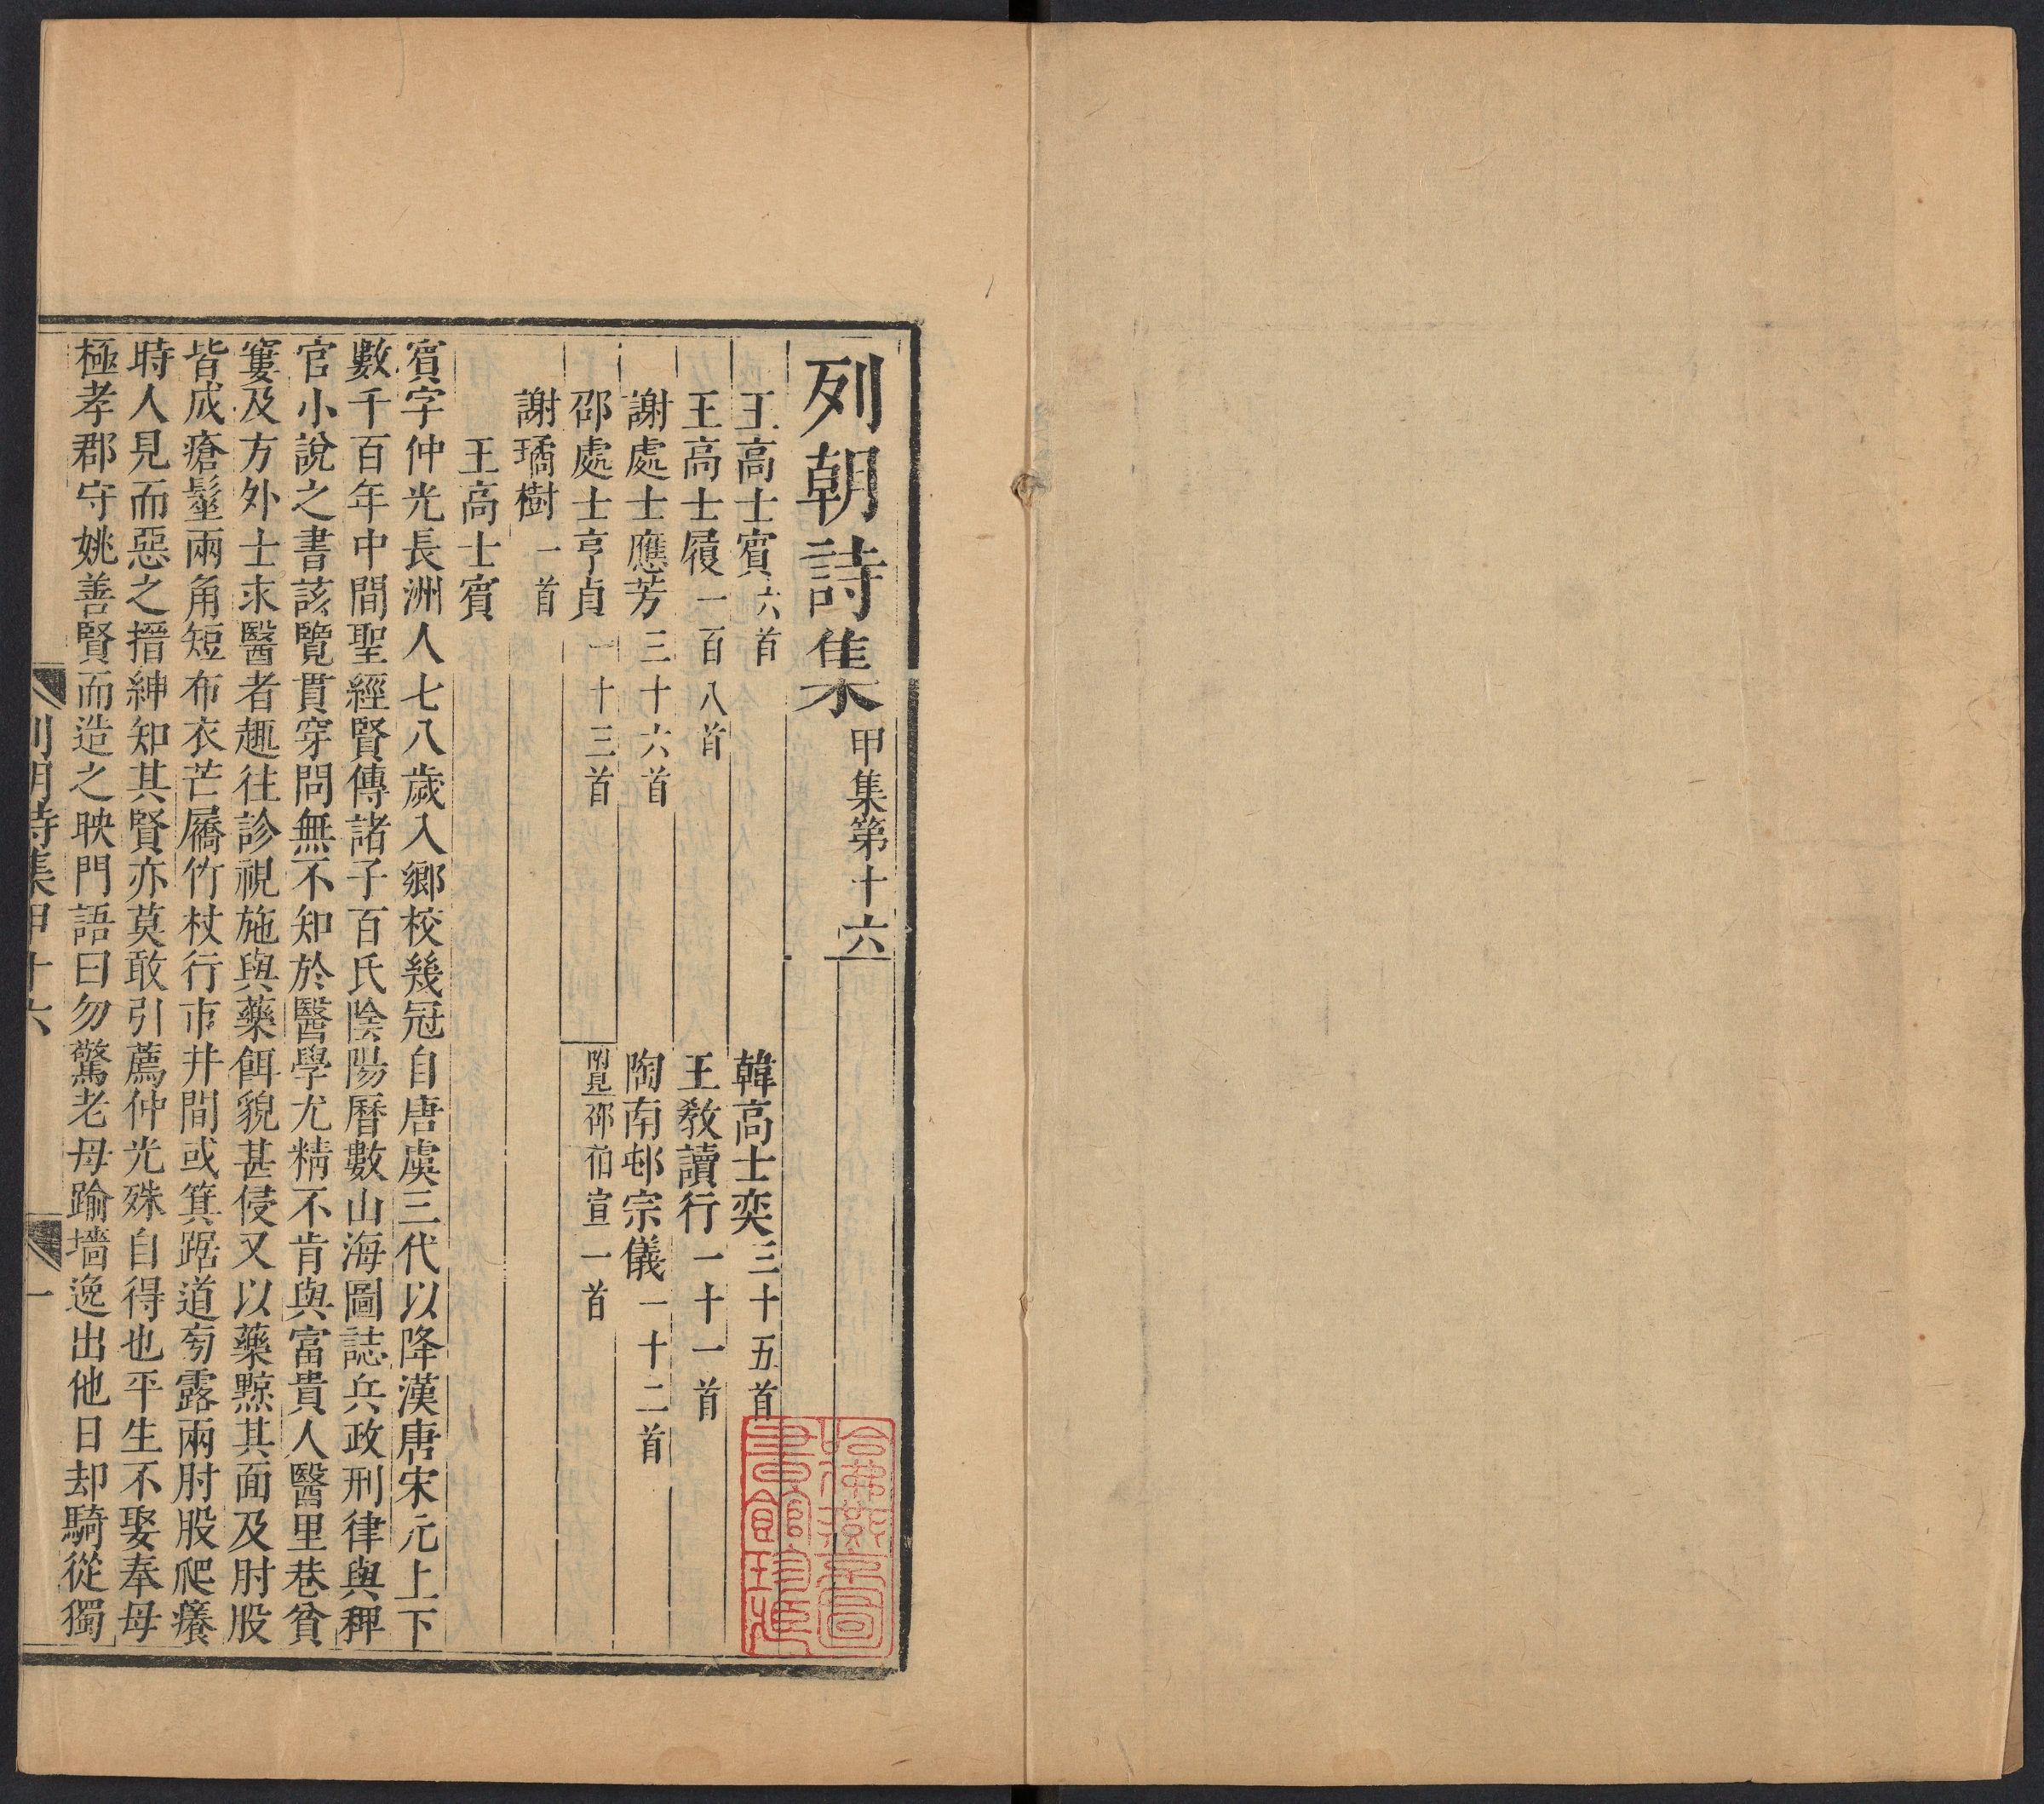 列朝詩集 甲集第十六
王高士賓 六首 韓高士奕 三十五首
王高士履 一百八首 王敎讀行 一十一首
謝處士應芳 三十六首 陶南邨宗儀 一十二首
邵處士亨貞 一十三首 附見 邵伯宣一首
謝璚樹 一首
王高士賓
賓字仲光長洲人七八歲入鄉校幾冠自唐虞三代以降漢唐宋元上下
數千百年中間聖經賢傳諸子百氏陰陽曆數山海圖誌兵政刑律與稗
官小說之書該覽貫穿問無不知於醫學尤精不肯與富貴人醫里巷貧
窶及方外士求醫者趣往診視施與藥餌貌甚侵又以藥黥其面及肘股
皆成瘡髽兩角短布衣芒屩竹杖行市井間或箕踞道旁露兩肘股爬癢
時人見而惡之搢紳知其賢亦莫敢引薦仲光殊自得也平生不娶奉母
極孝郡守姚善賢而造之映門語曰勿驚老母踰墻逸出他日却騎從獨
列朝詩集甲十六 一
哈佛燕京圖
書館珍藏